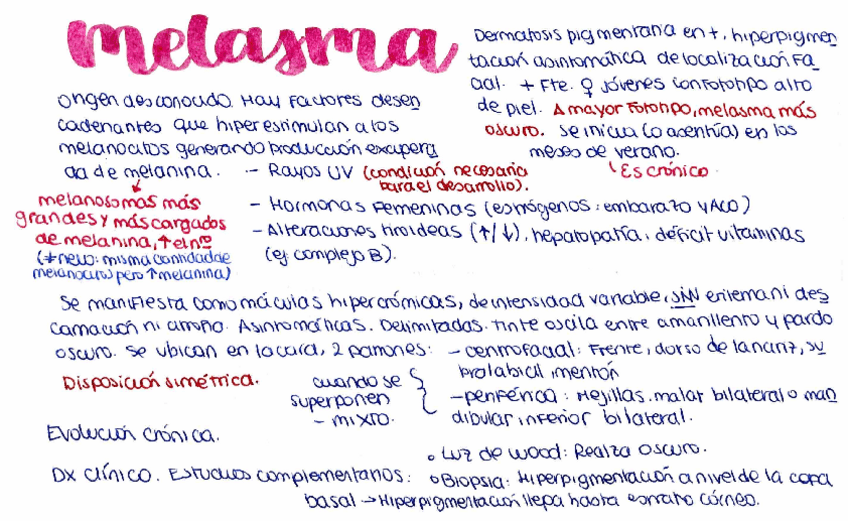 melasma
Dermatosis pigmentaria en +, hiperpigmen
tación asintomática de localización Fa
cial. + Fte. ♀ jóvenes con fototipo alto
de piel. A mayor fototipo, melasma más
oscuro. Se inicia (o acentúa) en los
meses de verano.
↳ Es crónico.
Origen desconocido. Hay factores desen
cadenantes que hiperestimulan a los
melanocitos generando producción exagera
da de melanina.
melanosomas más
grandes y más cargados
de melanina, ↑ el nº
(≠ nevo: misma cantidad de
melanocitos pero ↑ melanina)
- Rayos UV (condición necesaria
para el desarrollo).
- Hormonas Femeninas (estrógenos: embarazo y ACO)
- Alteraciones tiroideas (↑/↓), hepatopatía, déficit vitaminas
(ej complejo B).
Se manifiesta como máculas hipercrómicas, de intensidad variable, SIN eritema ni des
camación ni atrofia. Asintomáticas. Delimitadas. Tinte oscila entre amarillento y pardo
oscuro. Se ubican en la cara, 2 patrones:
- centrofacial: Frente, dorso de la nariz, su
prolabial, mentón
- periférica: Mejillas. malar bilateral o man
dibular inferior bilateral.
cuando se
superponen
- mixto.
Disposición simétrica.
Evolución crónica.
Dx clínico. Estudios complementarios:
• Luz de wood: Realza oscuro.
• Biopsia: Hiperpigmentación a nivel de la capa
basal → Hiperpigmentación llega hasta estrato córneo.